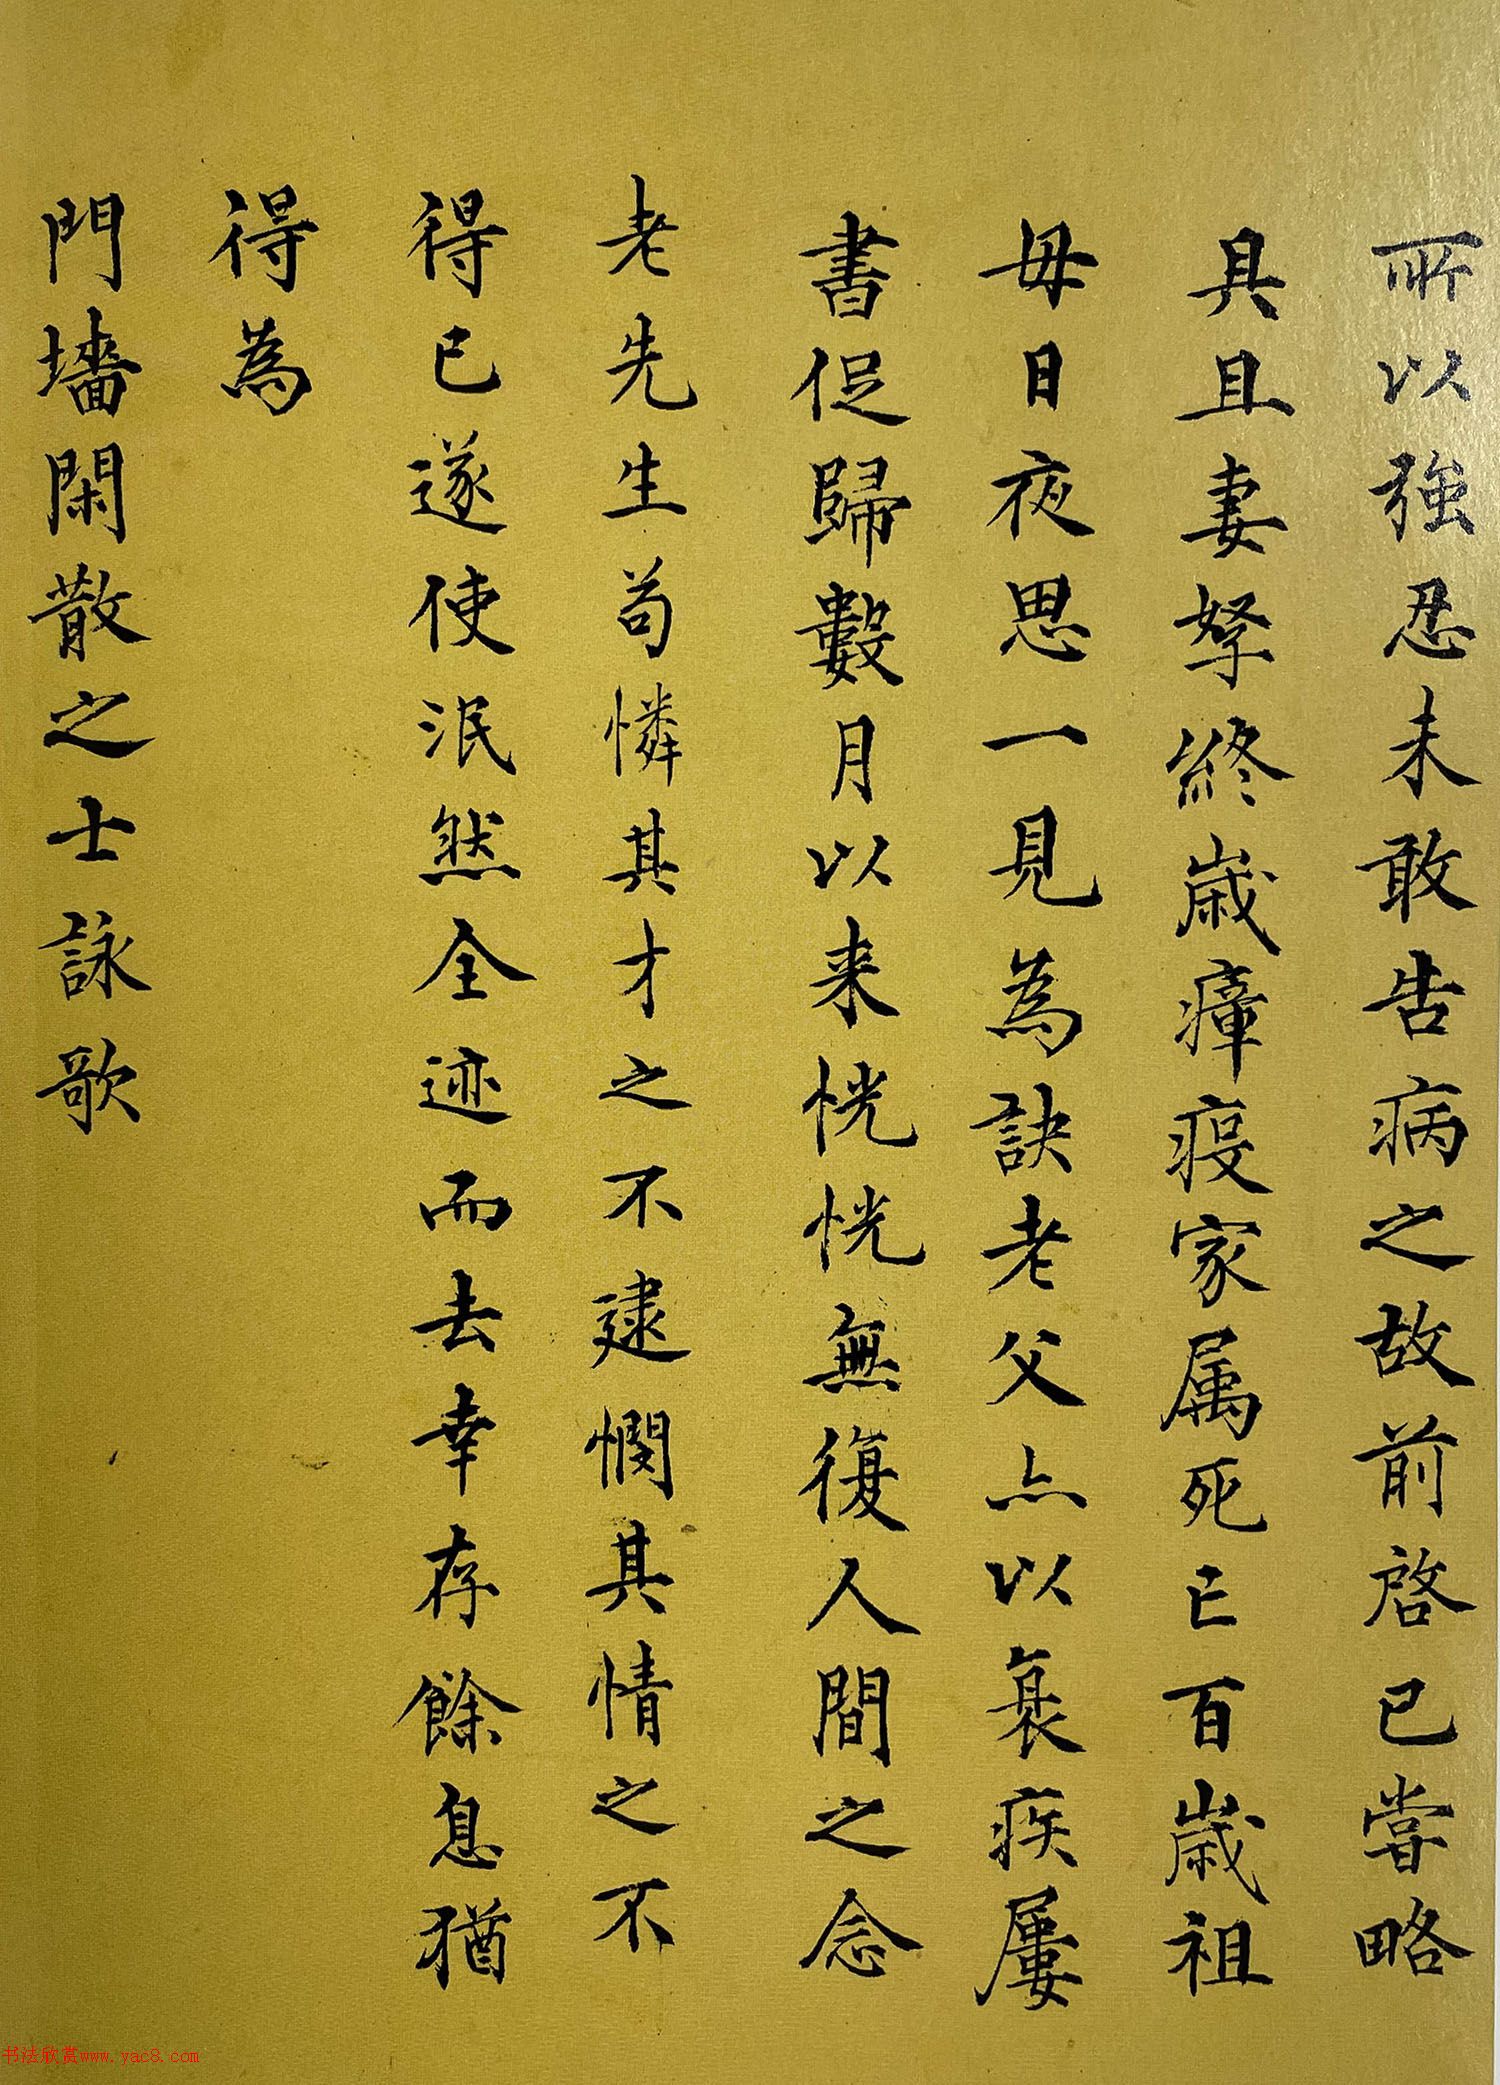 所以強忍未敢告病之故前啓已嘗略
具且妻孥終歲瘴疫家属死亡百歲祖
母日夜思一見為訣老父亦以衰疾屢
書促歸數月以来恍恍無復人間之念
老先生苟憐其才之不逮憫其情之不
得已遂使泯然全迹而去幸存餘息猶
得為
門墻閑散之士詠歌
书法欣赏www.yac8.com